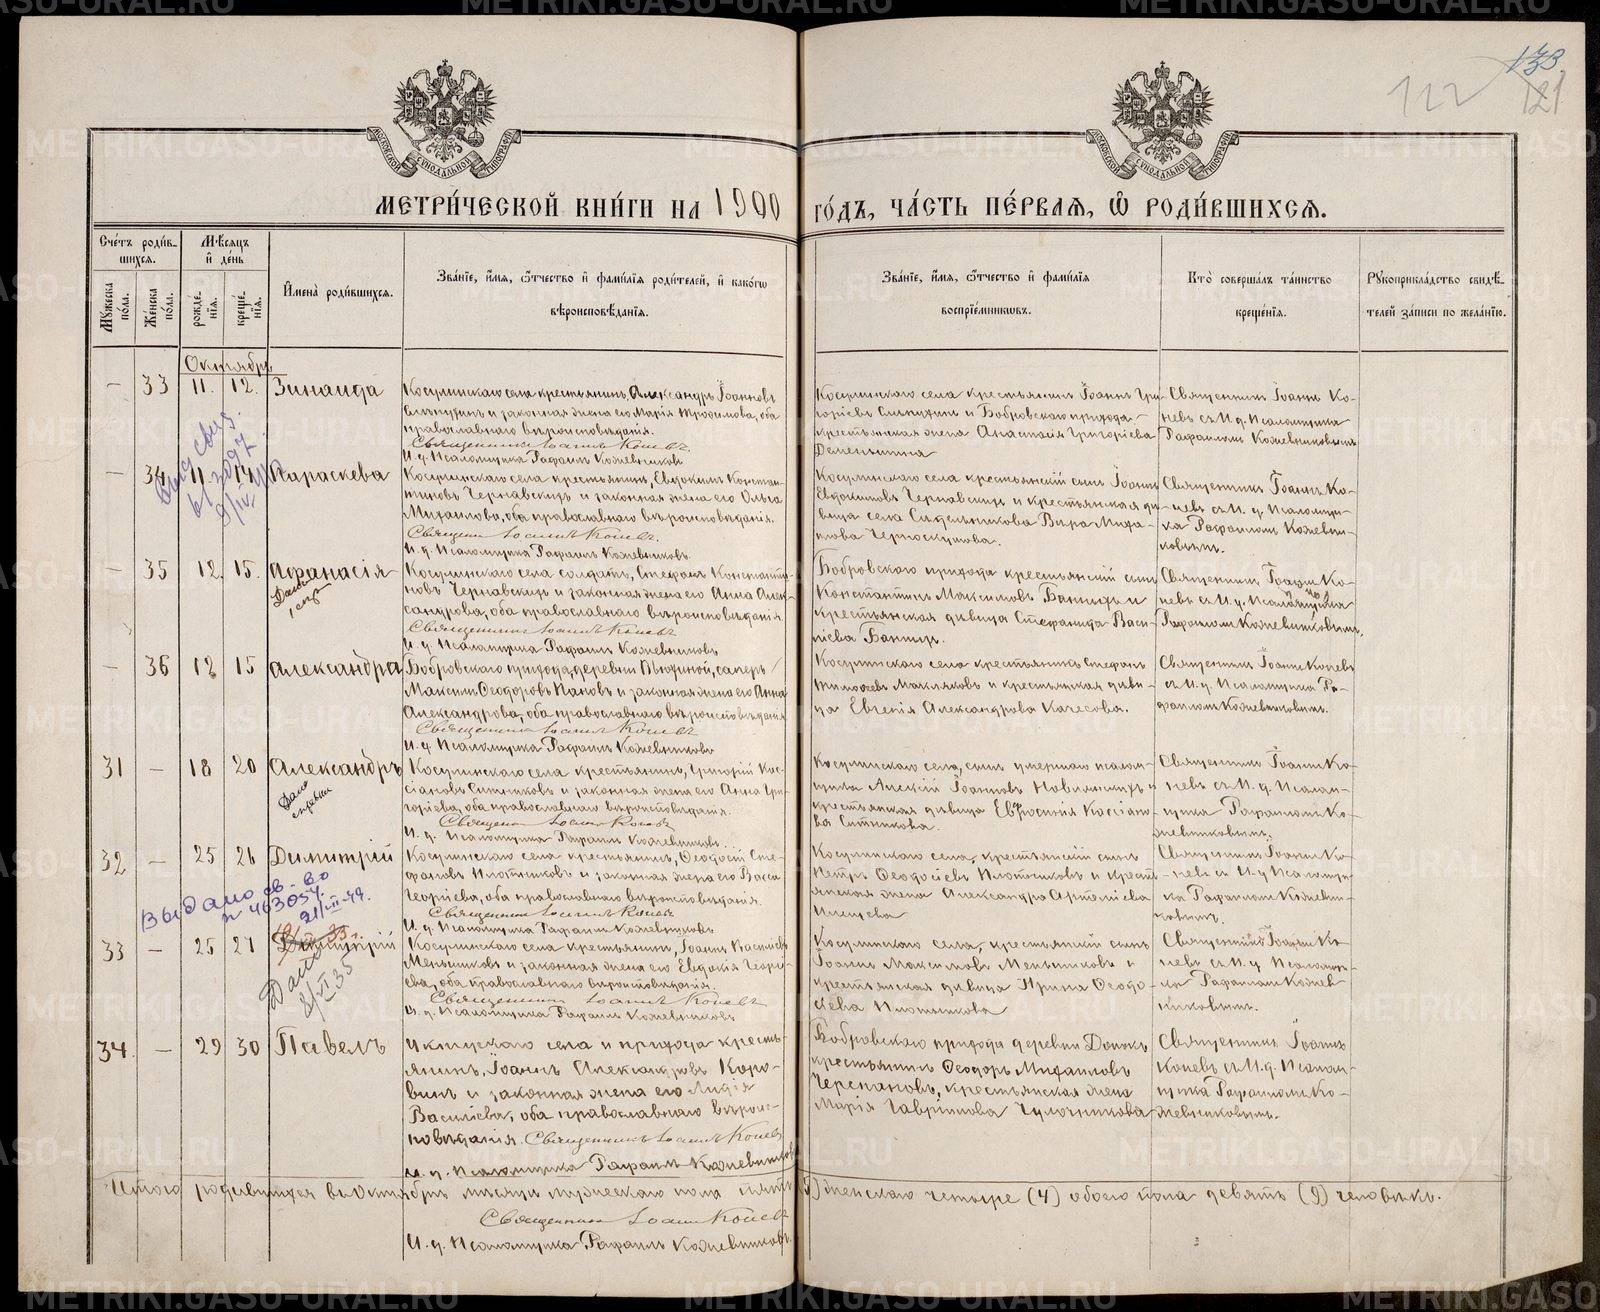 METRIKI.GASO-URAL.RU
133
121
112
МОСКОВСКОЙ СѴНОДАЛЬНОЙ ТИПОГРАФІИ
МОСКОВСКОЙ СѴНОДАЛЬНОЙ ТИПОГРАФІИ
МЕТРИ́ЧЕСКОЙ КНИ́ГИ НА 1900 ГО́ДЪ, ЧА́СТЬ ПЕ́РВАѦ, Ѽ РОДИ́ВШИХСѦ.
Сче́тъ роди́в-
шихсѧ.
Мꙋжеска по́ла.
Же́нска по́ла.
Мѣ́сѧцъ
и҆ де́нь
рожде́нїѧ.
креще́нїѧ.
И҆мена̀ роди́вшихсѧ.
Зва́нїе, и҆́мѧ, ѻ҆́тчество и҆ фами́лїѧ роди́телей, и҆ како́гѡ
вѣроисповѣ́данїѧ.
Зва́нїе, и҆́мѧ, ѻ҆́тчество и҆ фами́лїѧ
воспрїе́мникѡвъ.
Кто̀ соверша́лъ та́инство
креще́нїѧ.
Рꙋкоприкла́дство свидѣ́-
телей за́писи по жела́нїю.
Октябрь
— 33 11. 12. Зинаида
Косулинскаго села крестьянинъ, Александръ Іоанновъ
и законная жена его Марія Трофимова, оба
православнаго вѣроисповѣданія.
Священникъ Іоаннъ Коневъ.
И. д. Псаломщика Рафаилъ Кожевниковъ
Косулинскаго села крестьянинъ Іоаннъ Гри-
горіевъ и Бобровскаго прихода
крестьянская жена Анастасія Григоріева
Деменьшина
Священникъ Іоаннъ Ко-
невъ съ И. д. Псаломщика
Рафаиломъ Кожевниковымъ
— 34 11 14 Параскева
Косулинскаго села крестьянинъ, Евдокимъ Констан-
тиновъ Чернавскихъ и законная жена его Ольга
Михаилова, оба православнаго вѣроисповѣданія.
Священникъ Іоаннъ Коневъ.
И. д. Псаломщика Рафаилъ Кожевниковъ.
Косулинскаго села крестьянскій сынъ Іоаннъ
Евдокимовъ Чернавскихъ и крестьянская дѣ-
вица села Сидельникова Вѣра Миха-
илова Черноскутова.
Священникъ Іоаннъ Ко-
невъ съ И. д. Псаломщи-
ка Рафаиломъ Кожевни-
ковымъ.
— 35 12. 15. Афанасія
Дана спр
Косулинскаго села солдатъ, Стефанъ Константи-
новъ Чернавскихъ и законная жена его Анна Алек-
сандрова, оба православнаго вѣроисповѣданія.
Священникъ Іоаннъ Коневъ
И. д. Псаломщика Рафаилъ Кожевниковъ
Бобровскаго прихода крестьянскій сынъ
Константинъ Максимовъ Банныхъ и
крестьянская дѣвица Стефанида Васи-
ліева Банныхъ.
Священникъ Іоаннъ Ко-
невъ съ И. д. Псаломщика
Рафаиломъ Кожевниковымъ.
— 36 12 15 Александра
Бобровскаго прихода, деревни саперъ
Максимъ Ѳеодоровъ Пановъ и законная жена его Анна
Александрова, оба православнаго вѣроисповѣданія
Священникъ Іоаннъ Коневъ
И. д. Псаломщика Рафаилъ Кожевниковъ
Косулинскаго села крестьянинъ Стефанъ
Тимофеевъ Макляковъ и крестьянская дѣви-
ца Евгенія Александрова Качесова.
Священникъ Іоаннъ Коневъ
съ И. д. Псаломщика Ра-
фаиломъ Кожевниковымъ.
31 — 18 20 Александръ
Дана справка
Косулинскаго села крестьянинъ, Григорій Кас-
сіановъ Ситниковъ и законная жена его Анна Гри-
горіева, оба православнаго вѣроисповѣданія.
Священникъ Іоаннъ Коневъ
И. д. Псаломщика Рафаилъ Кожевниковъ.
Косулинскаго села, сынъ умершаго псалом-
щика Алексій Іоанновъ и
крестьянская дѣвица Евфросинія Кассіано-
ва Ситникова.
Священникъ Іоаннъ Ко-
невъ съ И. д. Псалом-
щика Рафаиломъ Ко-
жевниковымъ.
32 — 25 26 Димитрій
Выдано св-во
№ 463057.
21/VII-49.
Косулинскаго села крестьянинъ, Ѳеодосій Сте-
фановъ Плотниковъ и законная жена его Васса
Георгіева, оба православнаго вѣроисповѣданія.
Священникъ Іоаннъ Коневъ
И. д. Псаломщика Рафаилъ Кожевниковъ.
Косулинскаго села, крестьянскій сынъ
Петръ Ѳеодосіевъ Плотниковъ и кресть-
янская жена Александра
Священникъ Іоаннъ Ко-
невъ съ И. д. Псаломщи-
ка Рафаиломъ Кожевни-
ковымъ.
33 — 25 27 Димитрій
Дано
8/VI 35
Косулинскаго села крестьянинъ, Іоаннъ Василіевъ
Меньшиковъ и законная жена его Евдокія Георгі-
ева, оба православнаго вѣроисповѣданія.
Священникъ Іоаннъ Коневъ
И. д. Псаломщика Рафаилъ Кожевниковъ
Косулинскаго села, крестьянскій сынъ
Іоаннъ Максимовъ Меньшиковъ и
крестьянская дѣвица Ирина Ѳеодо-
сіева Плотникова
Священникъ Іоаннъ Ко-
невъ съ И. д. Псалом-
щика Рафаиломъ Кожев-
никовымъ.
34. — 29 30 Павелъ
села и прихода кресть-
янинъ, Іоаннъ Александровъ Коро-
винъ и законная жена его Лидія
Василіева, оба православнаго вѣроис-
повѣданія. Священникъ Іоаннъ Коневъ
И. д. Псаломщика Рафаилъ Кожевниковъ
Бобровскаго прихода деревни
крестьянинъ Ѳеодоръ Михаиловъ
Черепановъ, крестьянская жена
Марія Гавріилова Чулочникова
Священникъ Іоаннъ
Коневъ съ И. д. Псалом-
щика Рафаиломъ Ко-
жевниковымъ.
Итого родившихся въ Октябрѣ мѣсяцѣ мужескаго пола пять (5) женскаго четыре (4) обоего пола девять (9) человѣкъ.
Священникъ Іоаннъ Коневъ
И. д. Псаломщика Рафаилъ Кожевниковъ.